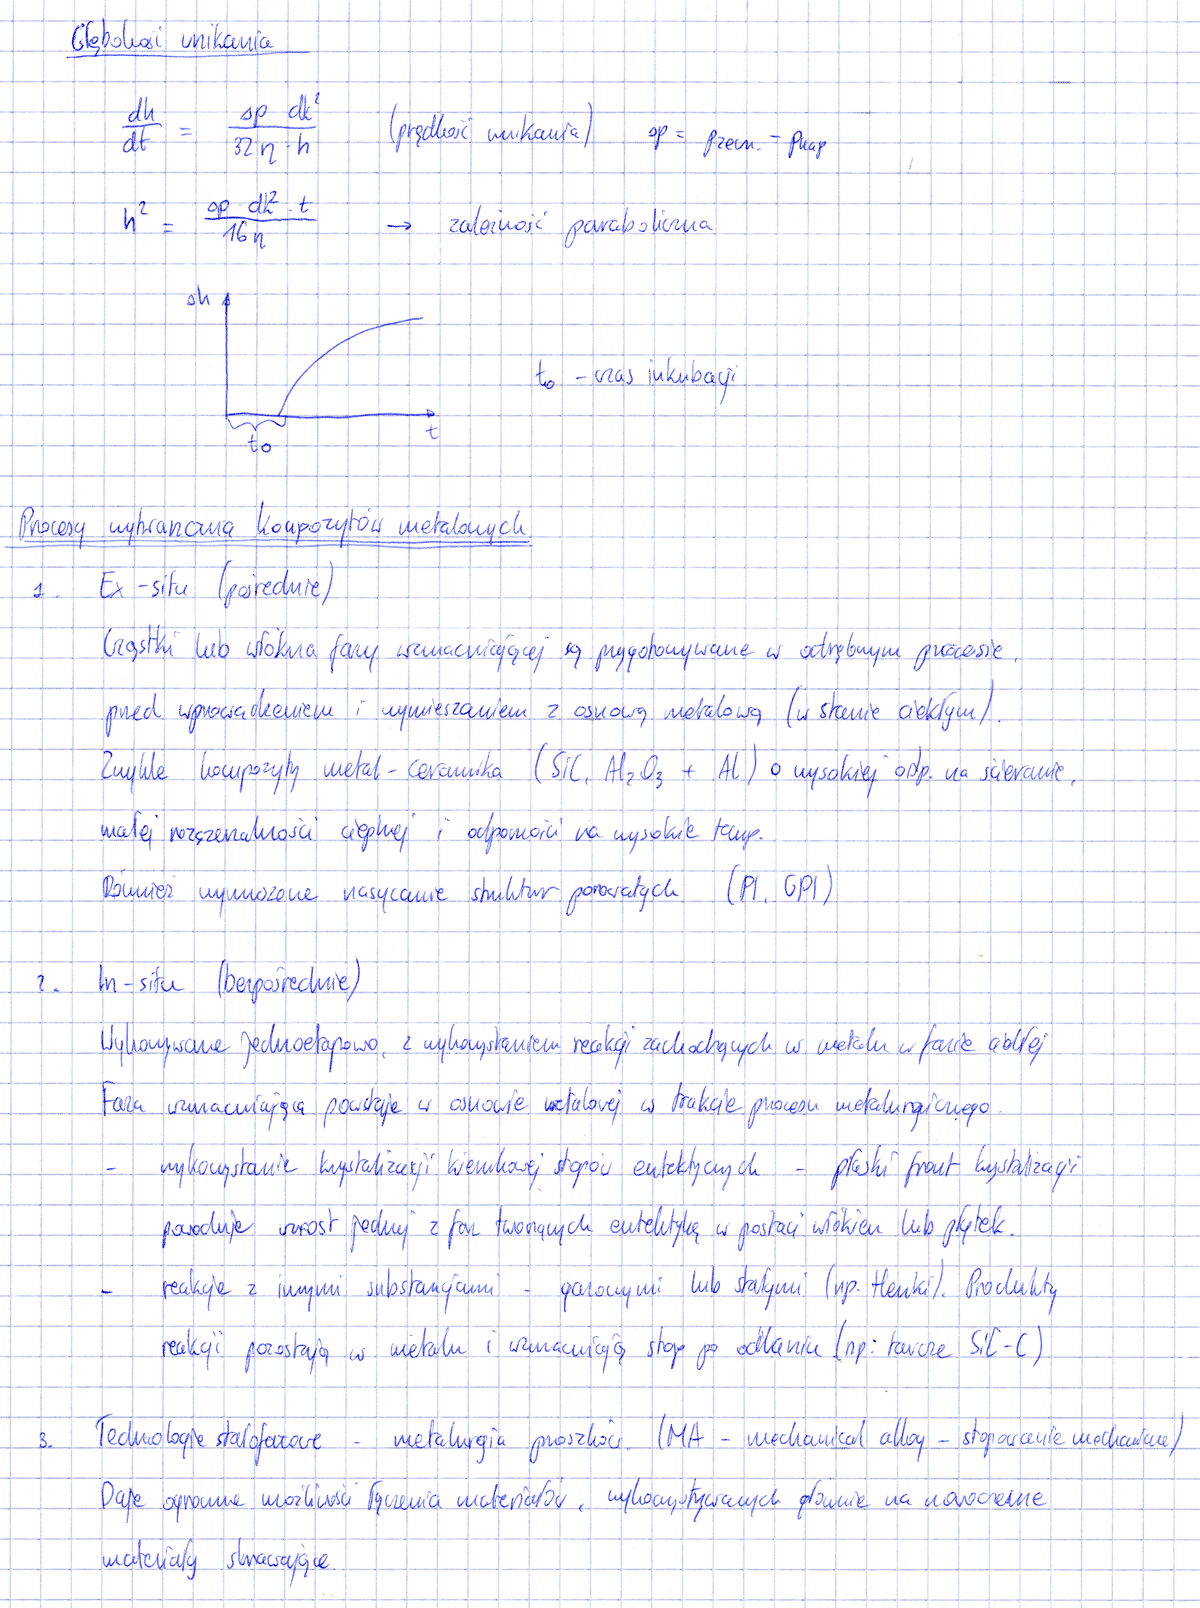 Głębokość wnikania
dh/dt = Δp · dk² / 32η · h (prędkość wnikania) Δp = pzewn. - pkap
h² = Δp · dk² · t / 16η → zależność paraboliczna
Δh
t₀ - czas inkubacji
t
t₀
Procesy wytwarzania kompozytów metalowych
1. Ex-situ (pośrednie)
Cząstki lub włókna fazy wzmacniającej są przygotowywane w odrębnym procesie,
przed wprowadzeniem i wymieszaniem z osnową metalową (w stanie ciekłym).
Zwykle kompozyty metal-ceramika (SiC, Al₂O₃ + Al) o wysokiej odp. na ścieranie,
małej rozszerzalności cieplnej i odporności na wysokie temp.
Również wymuszone nasycanie struktur porowatych (PI, GPI)
2. In-situ (bezpośrednie)
Wykonywane jednoetapowo, z wykorzystaniem reakcji zachodzących w metalu w fazie ciekłej
Faza wzmacniająca powstaje w osnowie metalowej w trakcie procesu metalurgicznego.
- wykorzystanie krystalizacji kierunkowej stopów eutektycznych - płaski front krystalizacji
powoduje wzrost jednej z faz tworzących eutektykę w postaci włókien lub płytek.
- reakcje z innymi substancjami - gazowymi lub stałymi (np. tlenki). Produkty
reakcji pozostają w metalu i wzmacniają stop po odlaniu (np: tarcze SiC-C)
3. Technologie stałofazowe - metalurgia proszków. (MA - mechanical alloy - stopowanie mechaniczne)
Daje ogromne możliwości łączenia materiałów, wykorzystywanych głównie na nowoczesne
materiały skrawające.